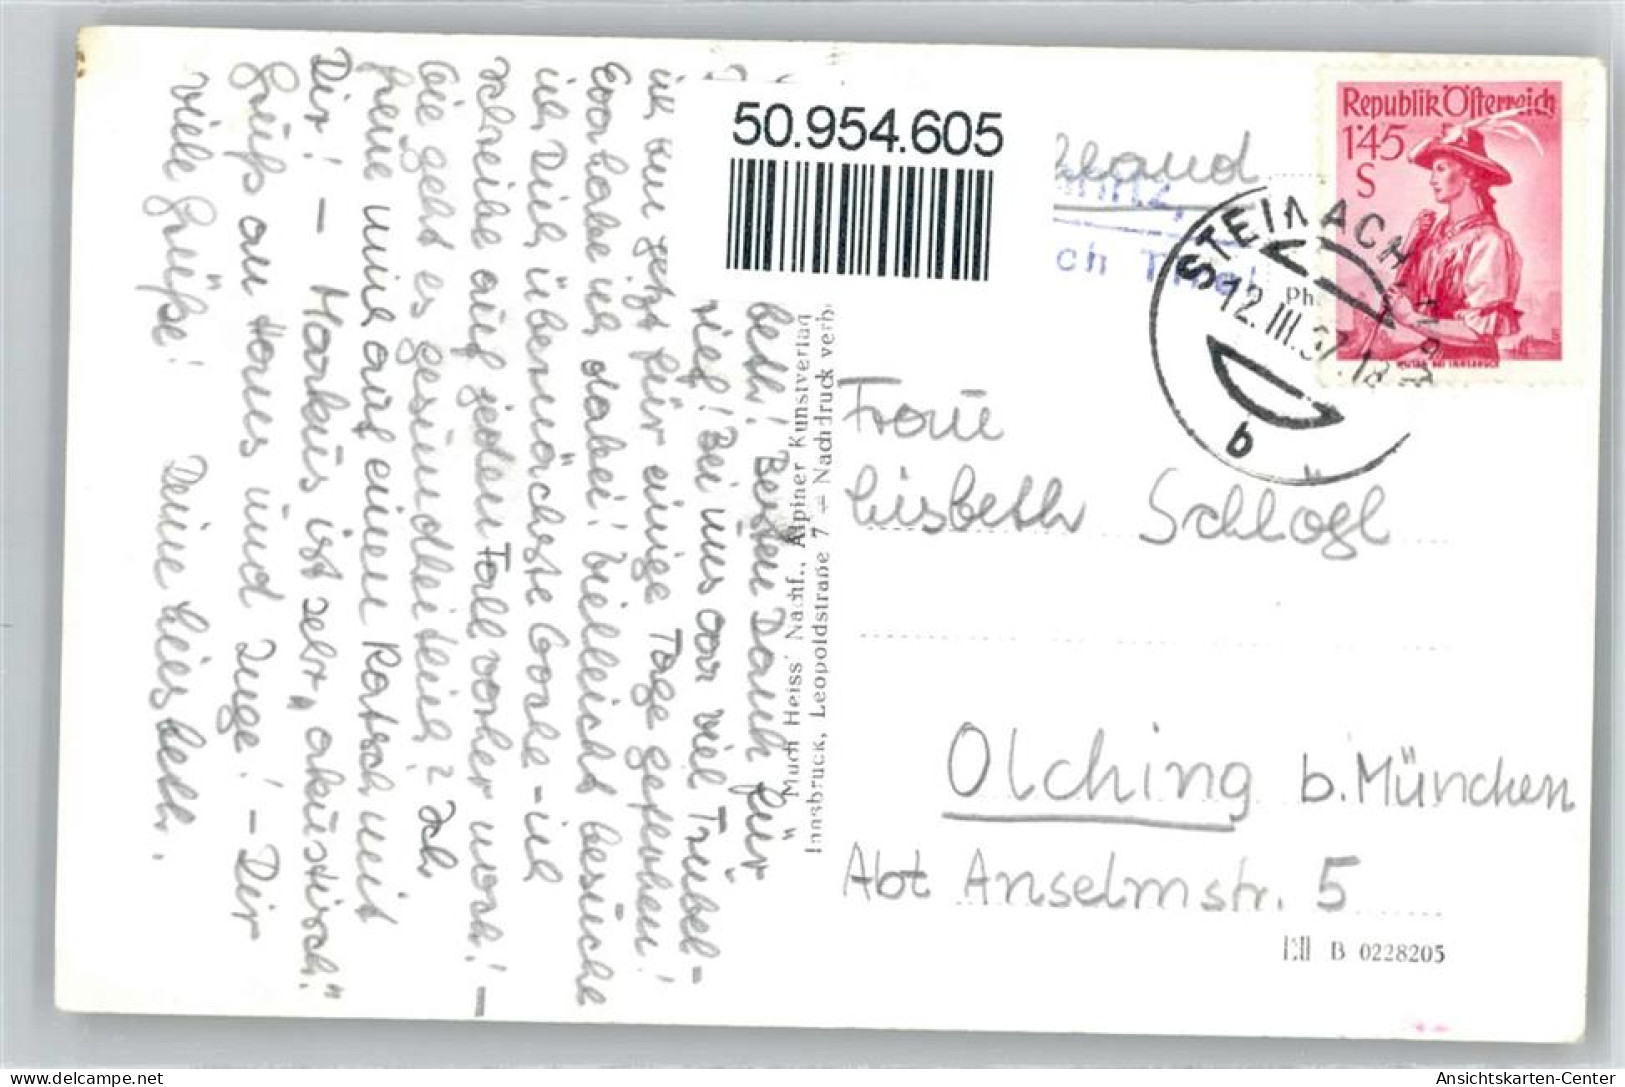 50.954.605
Republik Österreich
1'45
S
STEINACH
12.III.57.18
b
ch Tirol
Frau
Lisbeth Schlogl
Olching b. München
Abt Anselmstr. 5
B 0228205
Much Heiss' Nachf., Alpiner Kunstverlag
Innsbruck, Leopoldstraße 7 — Nachdruck verb
beth! Besten Dank für
rief! Bei uns war viel Trubel-
ich nun jetzt für einige Tage geflohen!
Eva habe ich dabei! Vielleicht besuche
ich Dich übernächste Woche - ich
schreibe auf jeden Fall vorher noch! -
Wie geht es gesundheitlich? Ich
freue mich auf einen Ratsch mit
Dir! - Markus ist sehr „akustisch"
Gruß an Hans und Inge! - Dir
viele Grüße! Deine Liesbeth.